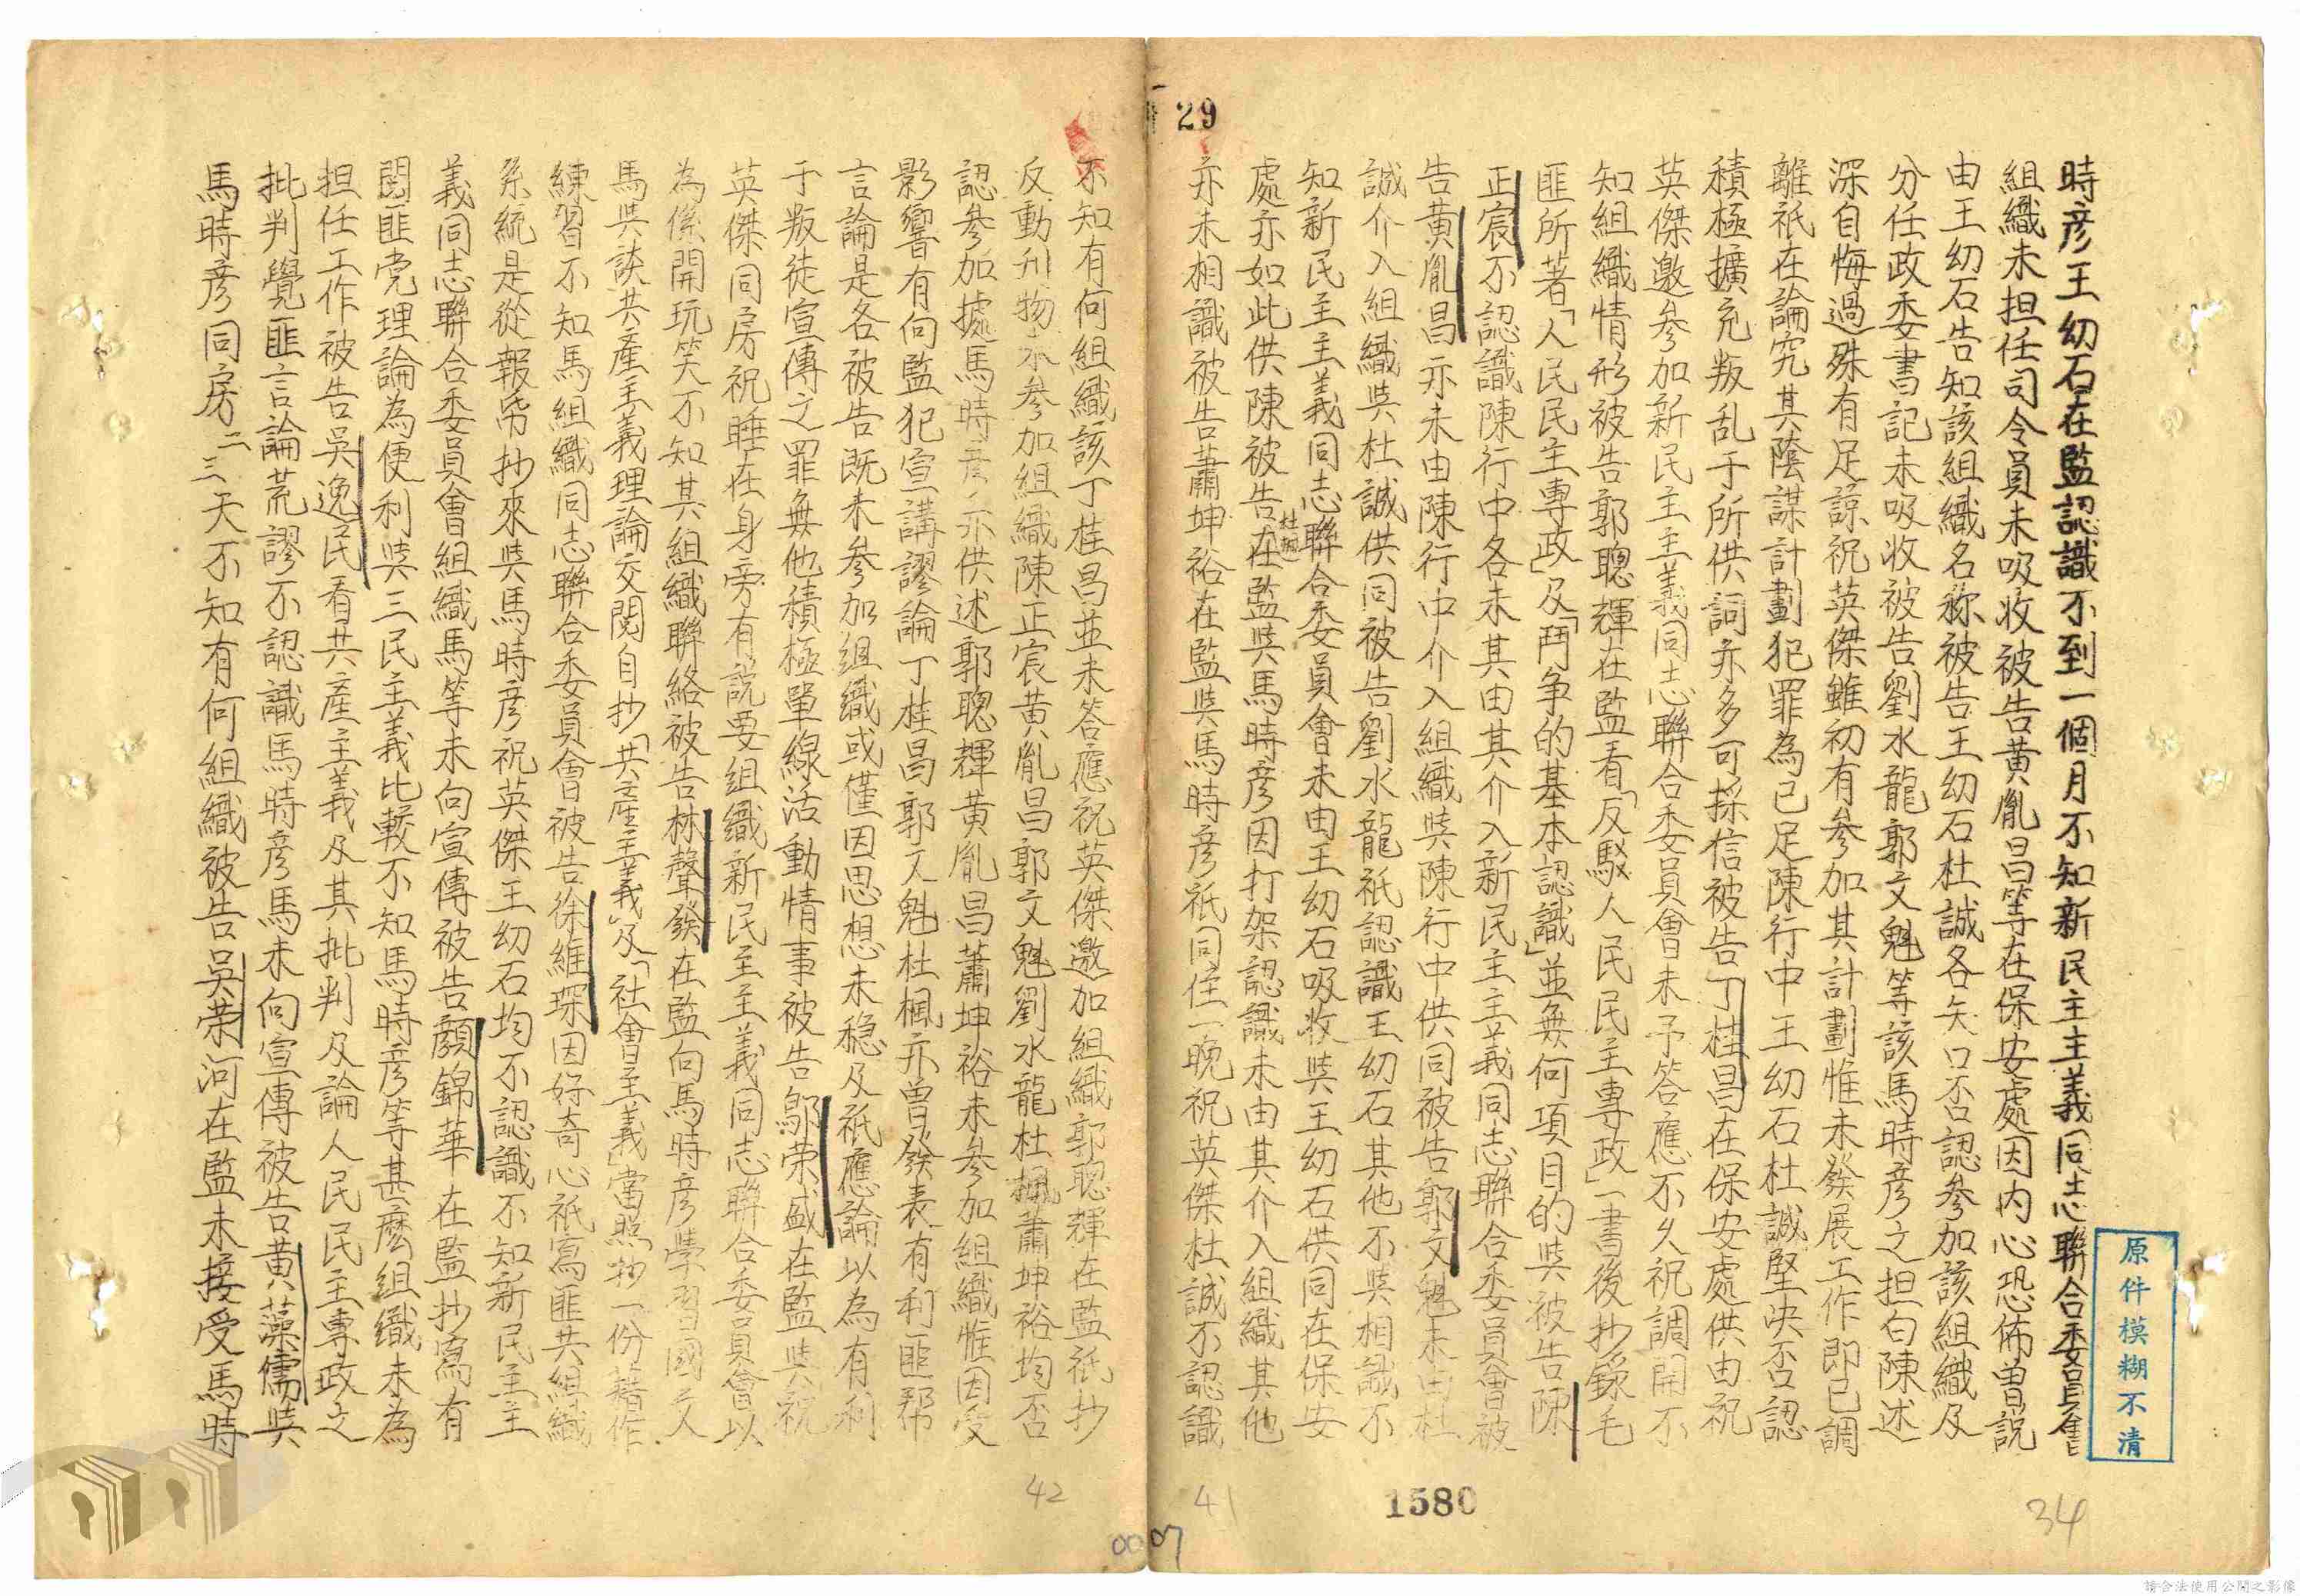 29
時彥王幼石在監認識不到一個月不知新民主主義同志聯合委員會
組織未担任司令員未吸收被告黃胤昌等在保安處因内心恐佈曾説
由王幼石告知該組織名称被告王幼石杜誠各矢口否認參加該組織及
分任政委書記未吸收被告劉水龍郭文魁等該馬時彥之担白陳述
深自悔過殊有足諒祝英傑雖初有參加其計劃惟未發展工作即已調
離祇在論究其陰謀計劃犯罪為已足陳行中王幼石杜誠堅决否認
積極擴充叛乱于所供詞亦多可採信被告丁桂昌在保安處供由祝
英傑邀參加新民主主義同志聯合委員會未予答應不久祝調開不
知組織情形被告郭聰輝在監看「反駁人民民主專政」一書後抄錄毛
匪所著「人民民主專政」及「鬥争的基本認識」並無何項目的與被告陳
正宸不認識陳行中各未其由其介入新民主主義同志聯合委員會被
告黃胤昌亦未由陳行中介入組織與陳行中供同被告郭文魁未由杜
誠介入組織與杜誠供同被告劉水龍祇認識王幼石其他不與相識不
知新民主主義同志聯合委員會未由王幼石吸收與王幼石供同在保安
處亦如此供陳被告杜楓在監與馬時彥因打架認識未由其介入組織其他
亦未相識被告蕭坤裕在監與馬時彥祇同住一晚祝英傑杜誠不認識
不知有何組織該丁桂昌並未答應祝英傑邀加組織郭聰輝在監祇抄
反動刊物未參加組織陳正宸黃胤昌郭文魁劉水龍杜楓蕭坤裕均否
認參加據馬時彥亦供述郭聰輝黃胤昌蕭坤裕未參加組織惟因受
影響有向監犯宣講謬論丁桂昌郭文魁杜楓亦曾發表有利匪帮
言論是各被告既未參加組織或僅因思想未穩及祇應論以為有利
于叛徒宣傳之罪無他積極單線活動情事被告鄔荣盛在監與祝
英傑同房祝睡在身旁有説要組織新民主主義同志聯合委員會以
為係開玩笑不知其組織聯絡被告林聲發在監向馬時彥學習國文
馬與談共產主義理論交閲自抄「共產主義」及「社會主義」當照抄一份藉作
練習不知馬組織同志聯合委員會被告徐維琛因好奇心祇寫匪共組織
系統是從報帋抄來與馬時彥祝英傑王幼石均不認識不知新民主主
義同志聯合委員會組織馬等未向宣傳被告顏錦華在監抄寫有
閲匪党理論為便利與三民主義比較不知馬時彥等甚麽組織未為
担任工作被告吳逸民看共產主義及其批判及論人民民主專政之
批判覺匪言論荒謬不認識馬時彥馬未向宣傳被告黃藻儒與
馬時彥同房二三天不知有何組織被告吳荣河在監未接受馬時
原件模糊不清
34
1580
41
42
0007
請合法使用公開之影像